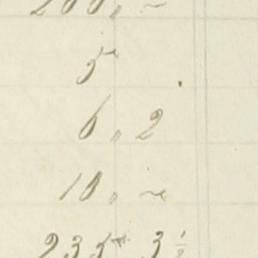 200 " ~
5 "
6 " 2
10 " ~
235 " 3 1/2